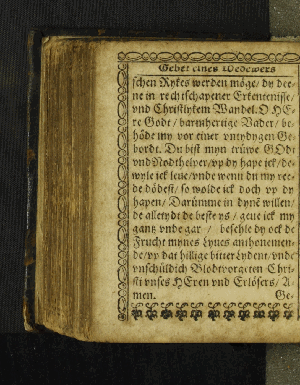 Gebet eines Wedewers
schen Rykes werden möge/ dy dee-
ne in rechtschapener Erkentenisse/
vnd Christlykem Wandel. O HE-
re Godt/ barmhertige Vader/ be-
höde my vor einer vntydygen Ge-
bordt. Du bist myn trüwe GOdt
vnd Nodthelper/ vp dy hape ick/ de-
wyle ick leue/ vnde wenn du my ree-
de dödest/ so wolde ick doch vp dy
hapen/ Darümme in dynē willen/
de alletydt de beste ys/ geue ick my
gantz vnde gar/ befehle dy ock de
Frucht mynes Lyues anhenemen-
de/ vp dat hillige bitter Lydent/ vnde
vnschüldich Blodtvorgeten Chri-
sti vnses HEren vnd Erlösers/ A-
men. Ge-